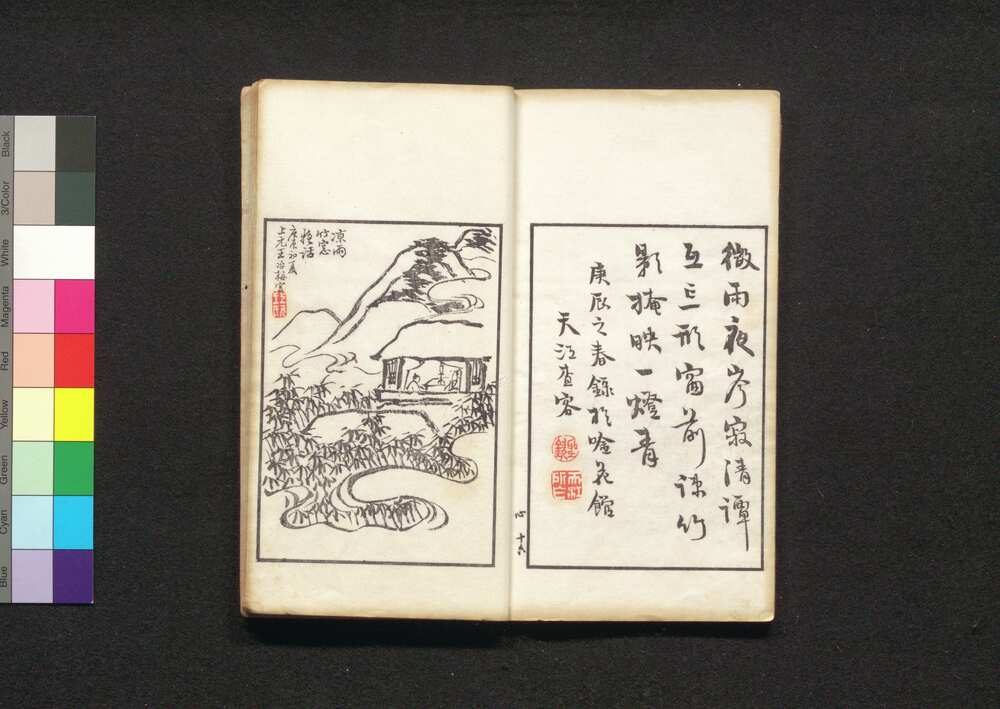 微雨夜岑寂清譚
互忘形窗前疎竹
影掩映一燈青
庚辰之春錄於唫花館
天江查客
心 十六
凉雨
竹窓
夜話
庚辰初夏
上元王冶梅寫
Black
3/Color
White
Magenta
Red
Yellow
Green
Cyan
Blue